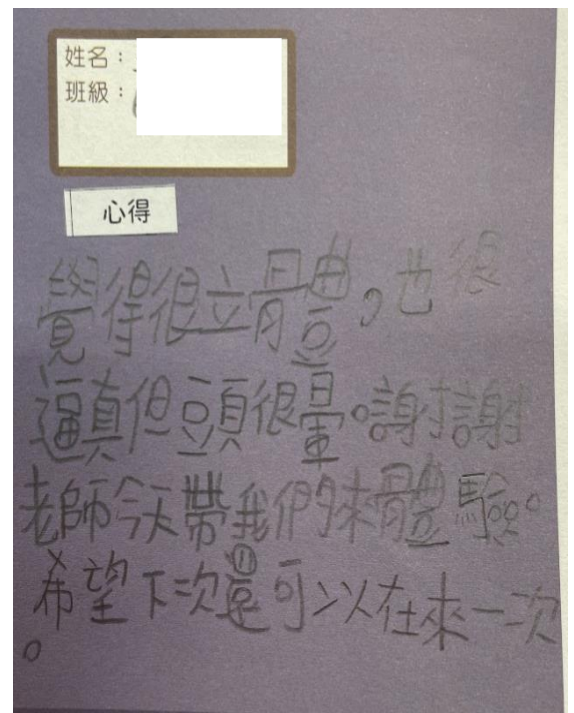 姓名：
班級：
心得
覺得很立體，也很
逼真但頭很暈。謝謝
老師今天帶我們來體驗。
希望下次還可以在來一次
。